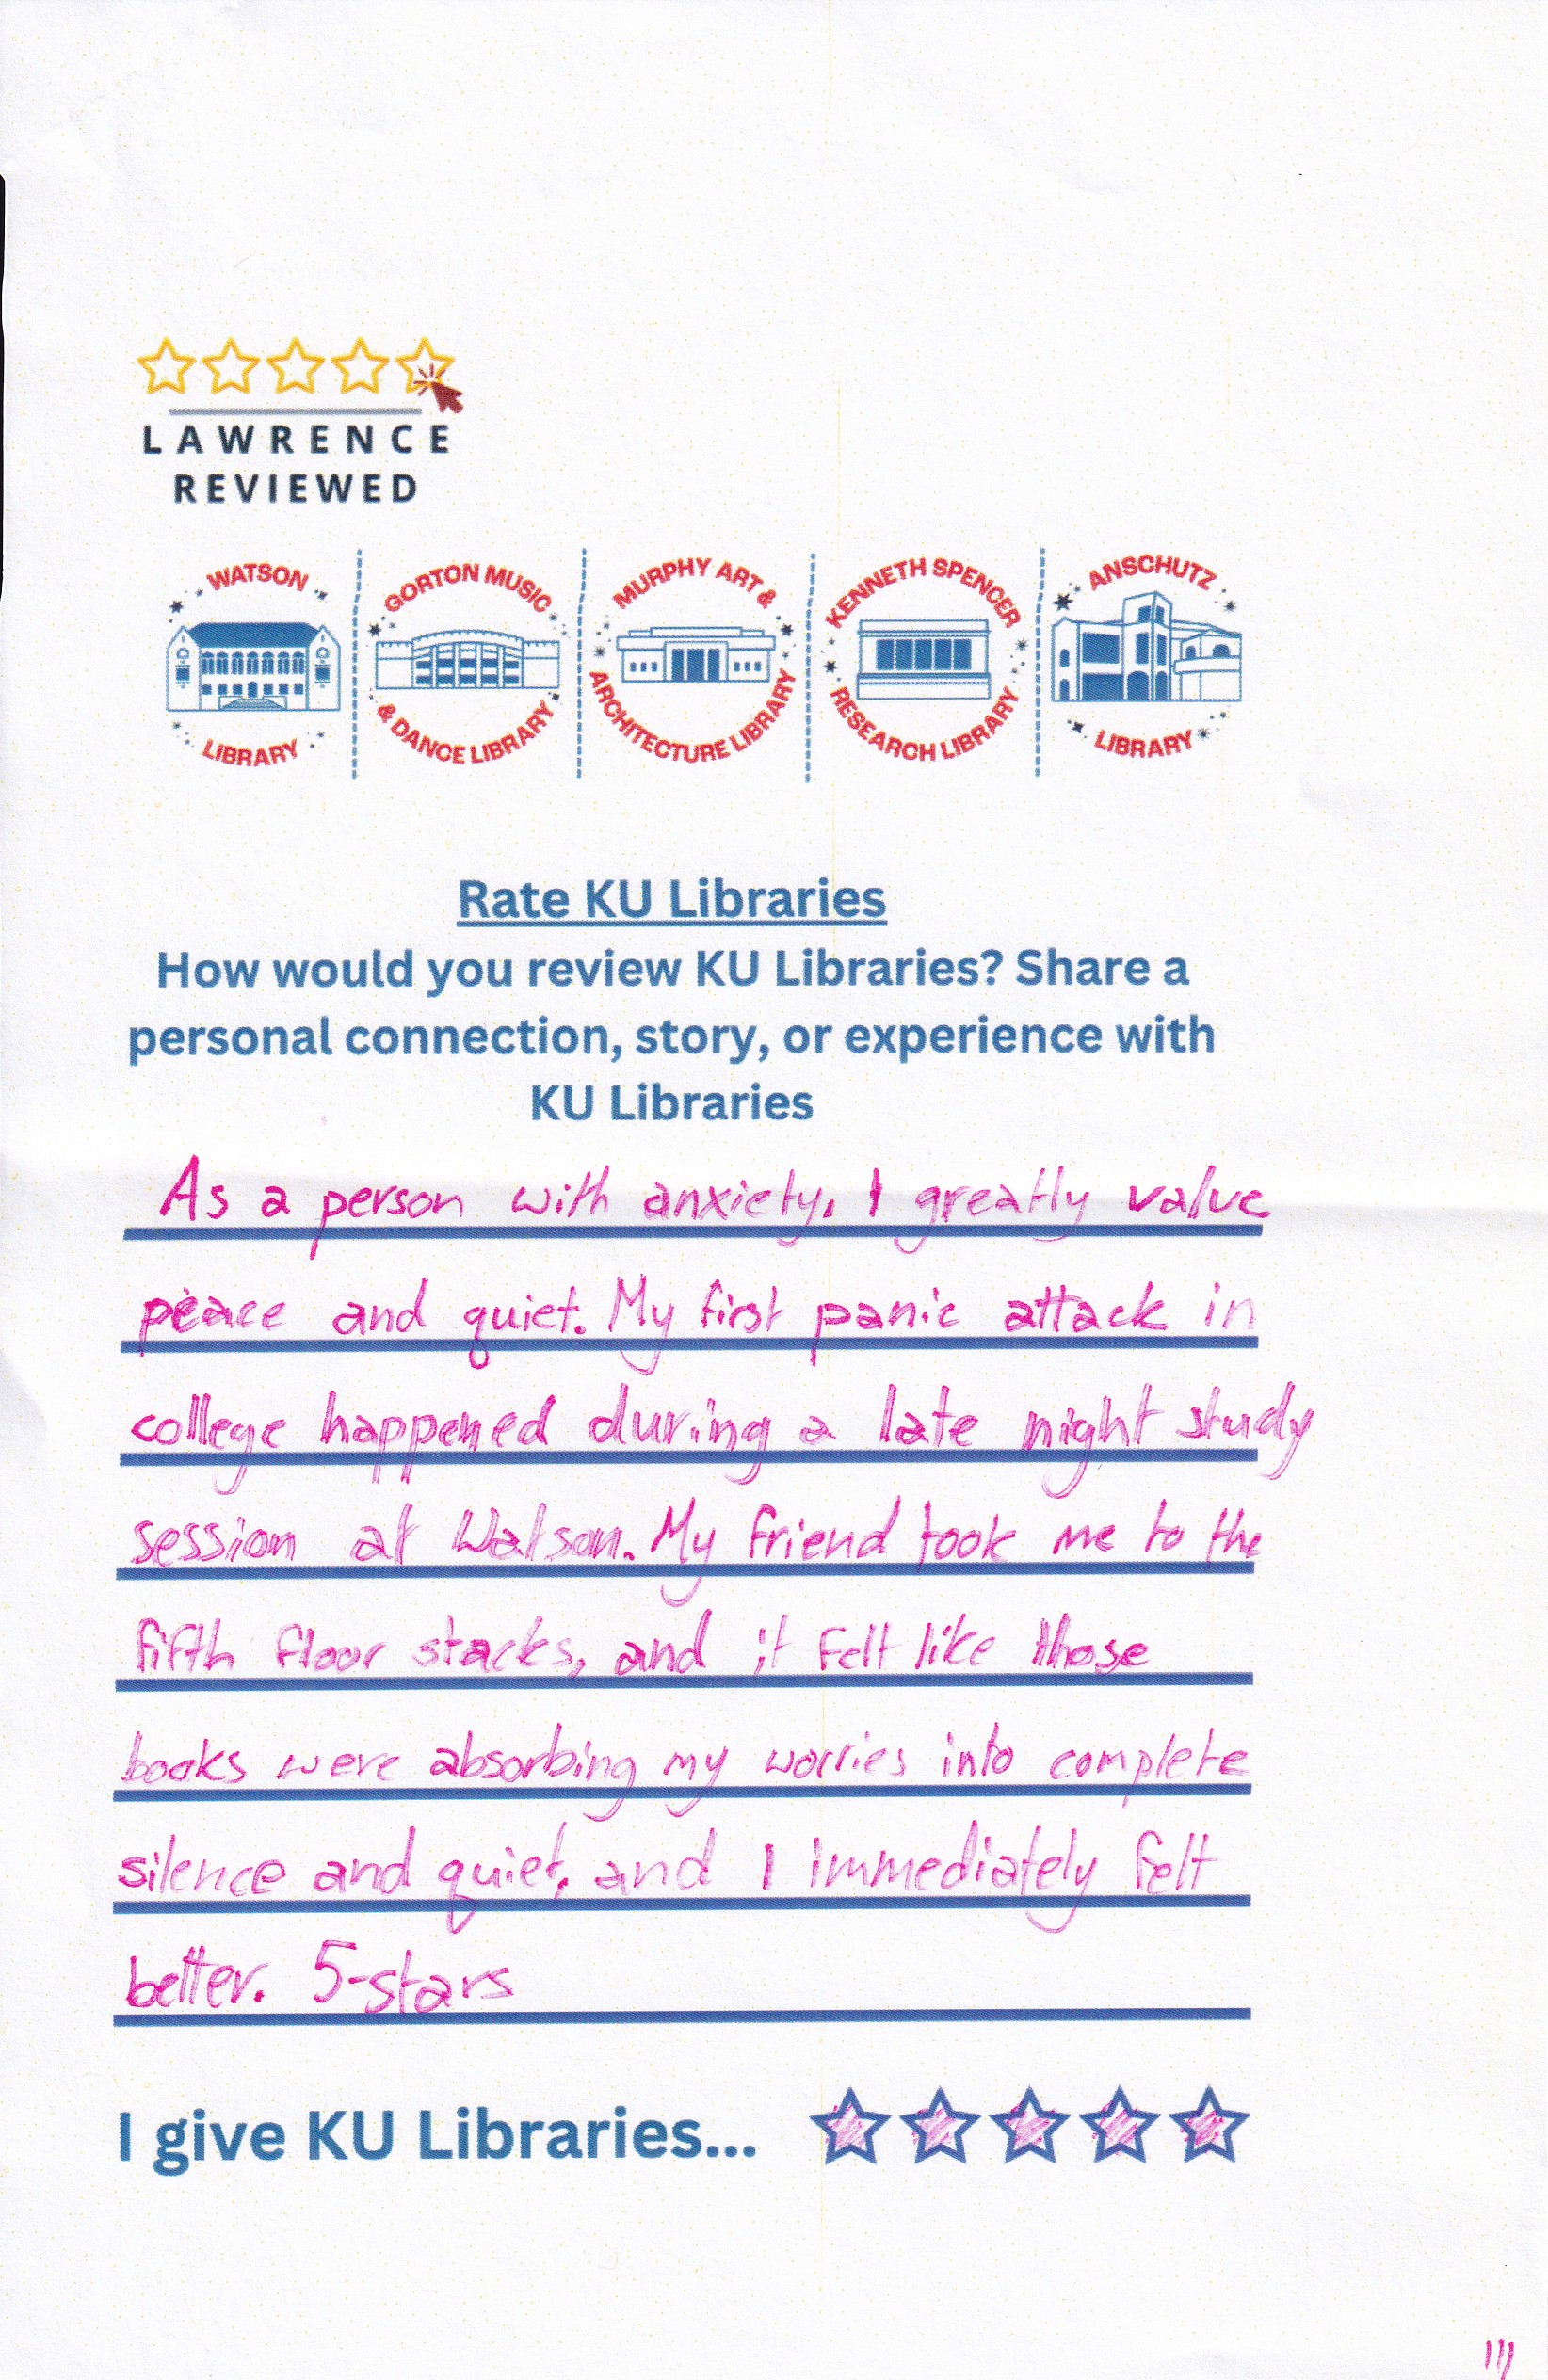 LAWRENCE
REVIEWED
WATSON
LIBRARY
GORTON MUSIC
& DANCE LIBRARY
MURPHY ART &
ARCHITECTURE LIBRARY
KENNETH SPENCER
RESEARCH LIBRARY
ANSCHUTZ
LIBRARY
Rate KU Libraries
How would you review KU Libraries? Share a
personal connection, story, or experience with
KU Libraries
As a person with anxiety, I greatly value
peace and quiet. My first panic attack in
college happened during a late night study
session at Watson. My friend took me to the
fifth floor stacks, and it felt like those
books were absorbing my worries into complete
silence and quiet, and I immediately felt
better. 5-stars
I give KU Libraries...